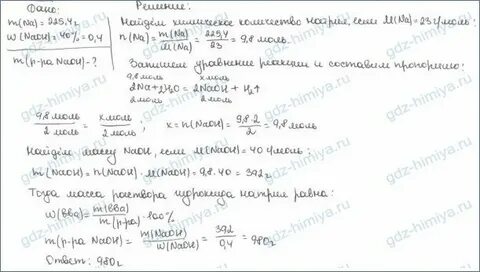 Дано:
m(Na) = 225,4г
w(NaOH) = 40% = 0,4
m(р-ра NaOH) - ?
Решение:
Найдём химическое количество натрия, если M(Na) = 23 г/моль:
n(Na) = m(Na)/M(Na) = 225,4/23 = 9,8 моль.
Запишем уравнение реакции и составим пропорцию:
9,8 моль x моль
2Na + 2H₂O = 2NaOH + H₂↑
2 моль 2 моль
9,8 моль/2 моль = x моль/2 моль, x = n(NaOH) = 9,8·2/2 = 9,8 моль
Найдём массу NaOH, если M(NaOH) = 40 г/моль:
m(NaOH) = n(NaOH)·M(NaOH) = 9,8·40 = 392г
Тогда масса раствора гидроксида натрия равна:
w(в-ва) = m(в-ва)/m(р-ра)·100%
m(р-ра NaOH) = m(NaOH)/w(NaOH) = 392/0,4 = 980г
Ответ: 980г
gdz-himiya.ru